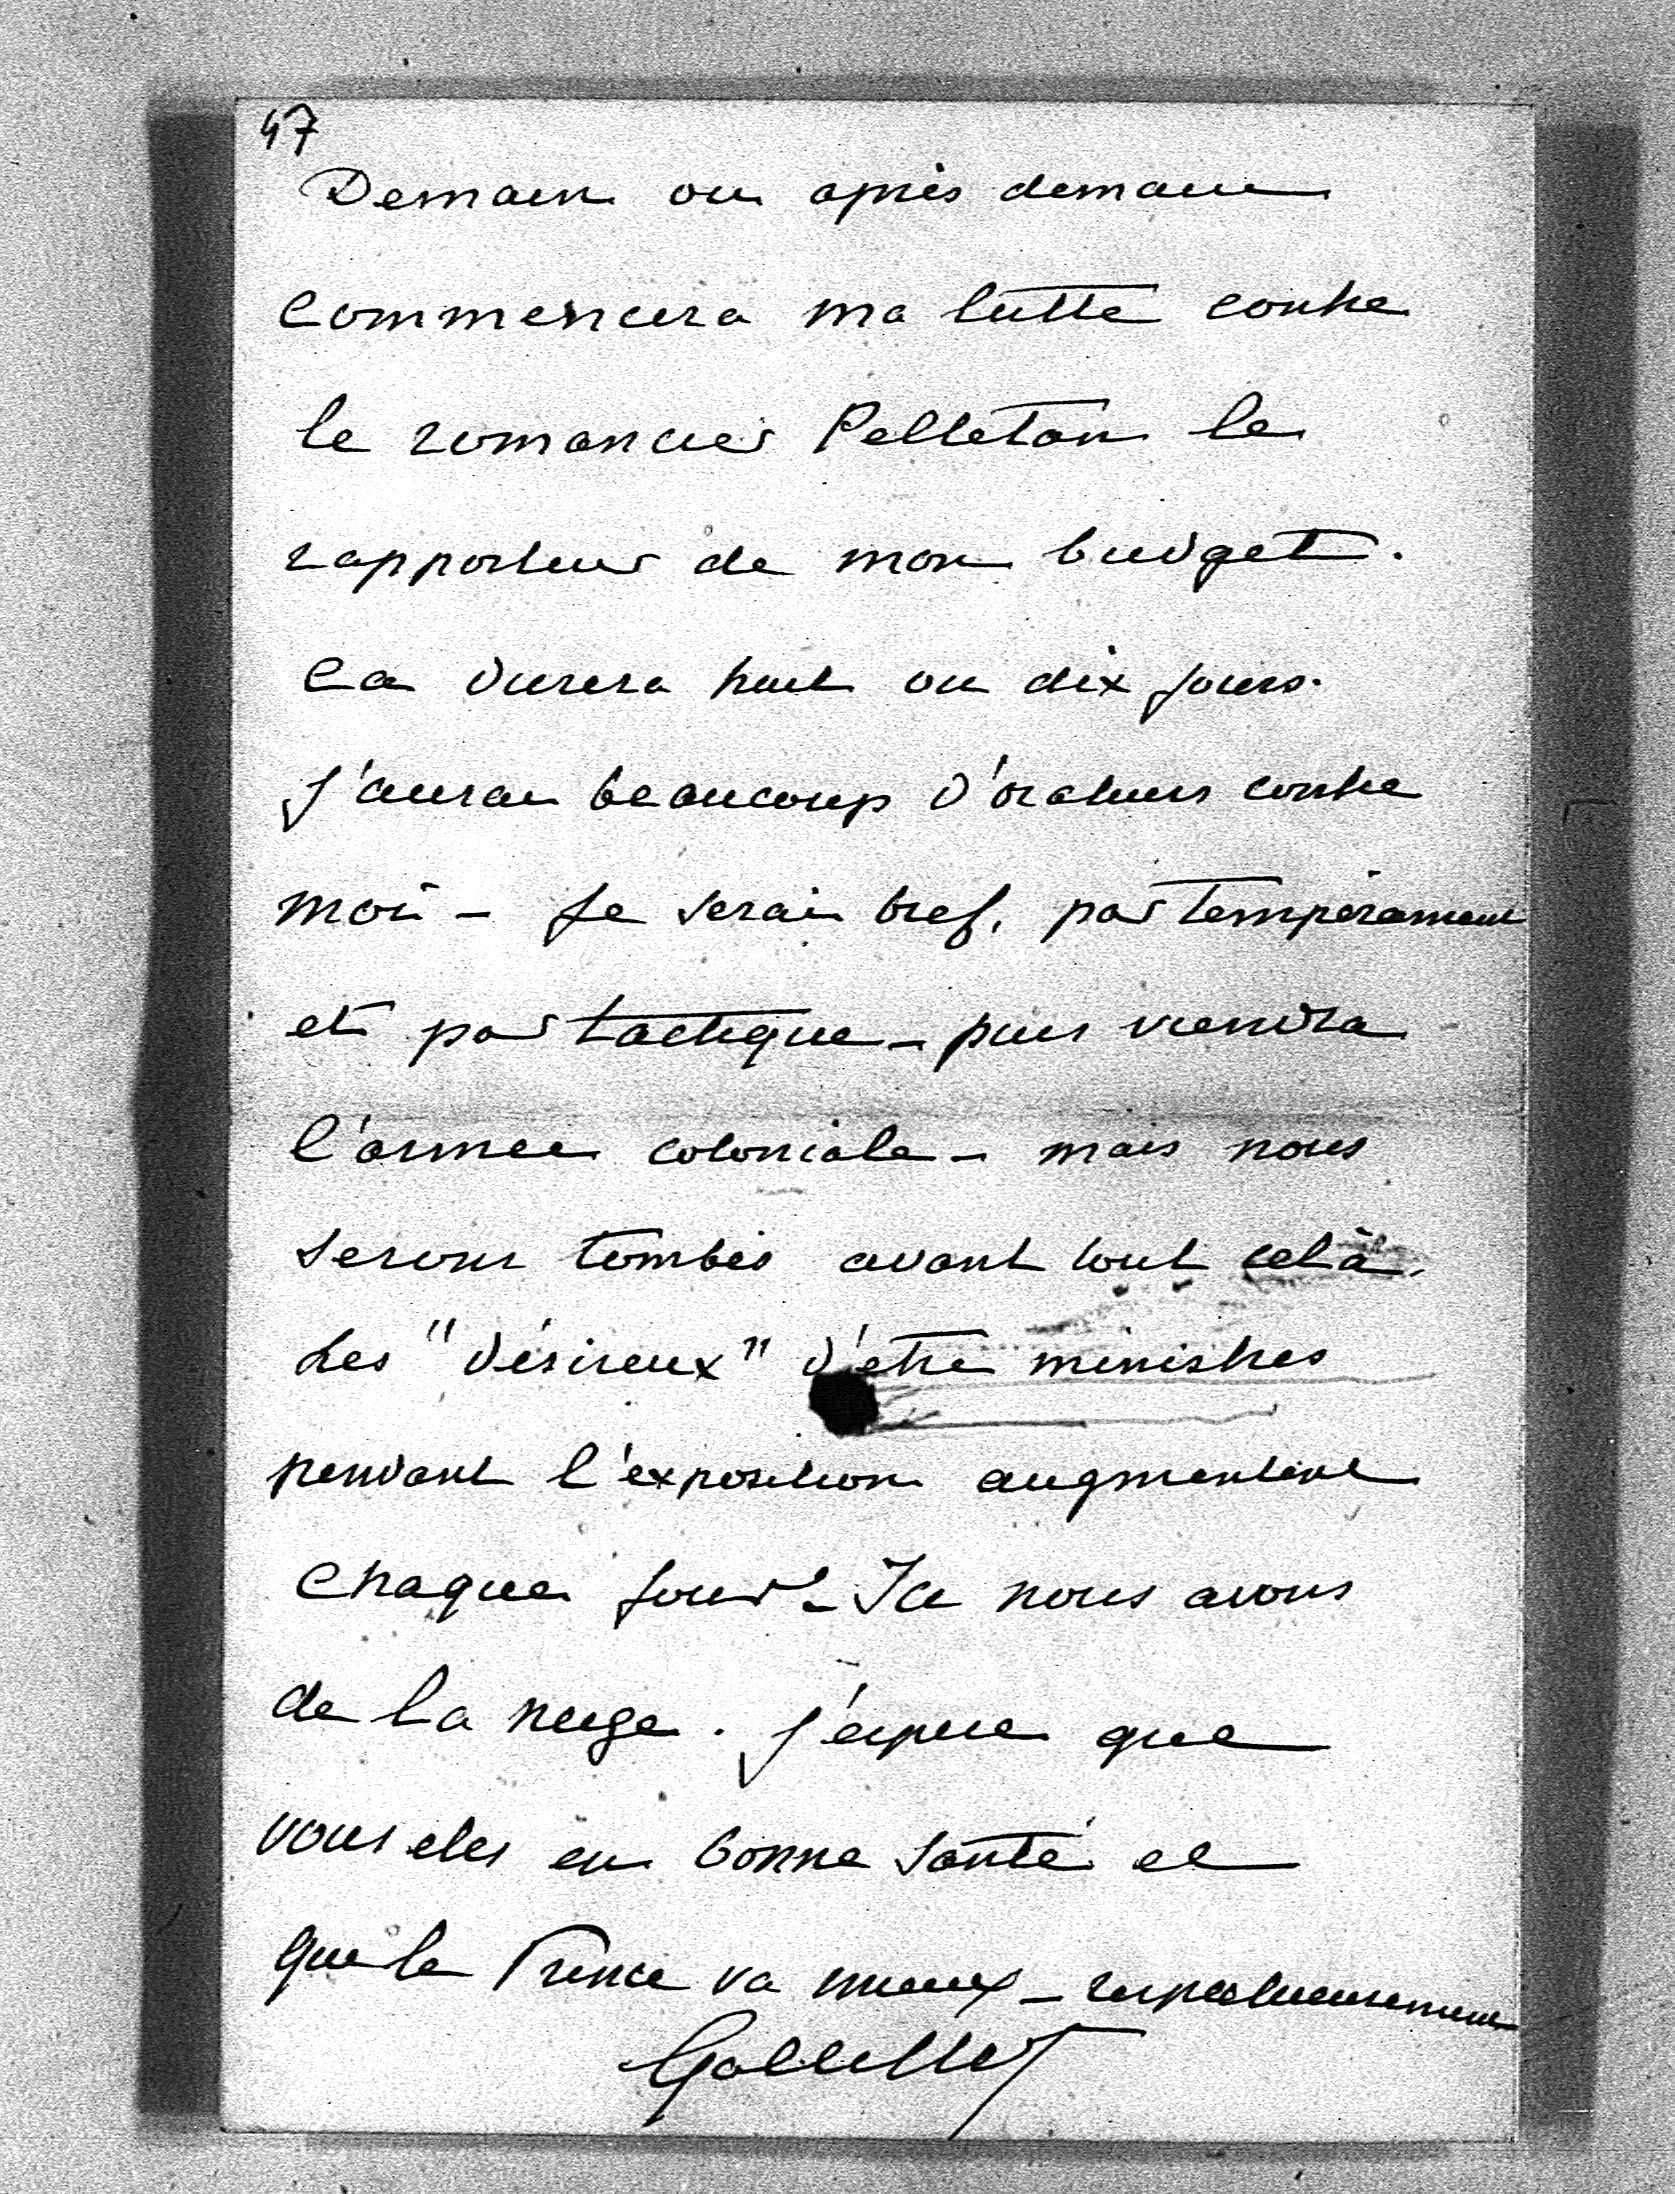 47
Demain ou après demain
commencera ma lutte contre
le romancier Pelletan le
rapporteur de mon budget.
Ca durera huit ou dix jours.
J'aurai beaucoup d'orateurs contre
moi – Je serai bref, par tempérament
et par tactique – puis viendra
l'armée coloniale – mais nous
serons tombés avant tout celà.
Les "désireux" d'etre ministres
pendant l'exposition augmentent
chaque jour – Ici nous avons
de la neige. j'espère que
vous etes en bonne santé et
que le Prince va mieux – respectueusement
Galliffet